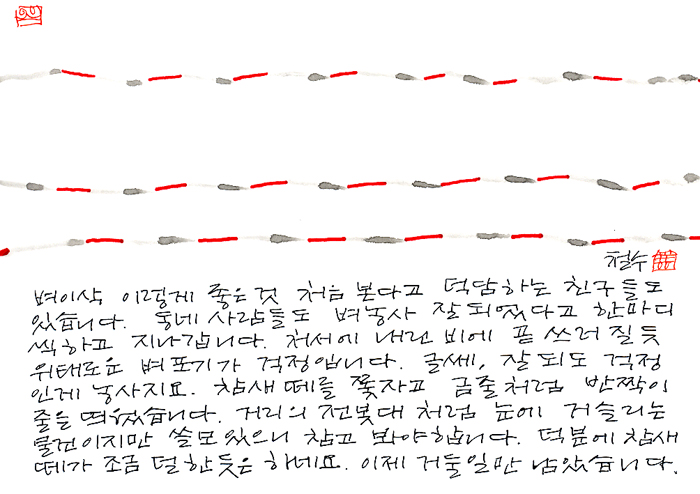 철수
벼이삭 이렇게 좋은것 처음 본다고 덕담하는 친구들도
있습니다. 동네 사람들도 벼농사 잘 되었다고 한마디
씩하고 지나갑니다. 처서에 내린 비에 푹 쓰러 질듯
위태로운 벼포기가 걱정입니다. 글쎄, 잘 되도 걱정
인게 농사지요. 참새 떼를 쫓자고 금줄처럼 반짝이
줄을 띄웠습니다. 거리의 전봇대 처럼 눈에 거슬리는
물건이지만 쓸모 있으니 참고 봐야합니다. 덕분에 참새
떼가 조금 덜 한듯은 하네요. 이제 거둘일만 남았습니다.